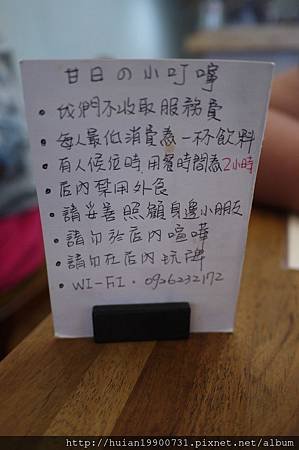 甘日の小叮嚀
• 我們不收取服務費
• 每人最低消費為一杯飲料
• 有人候位時,用餐時間為2小時
• 店內禁用外食
• 請妥善照顧身邊小朋友
• 請勿於店內喧嘩
• 請勿在店內玩牌
• WI-FI · 0926232172
http://huian19900731.pixnet.net/album